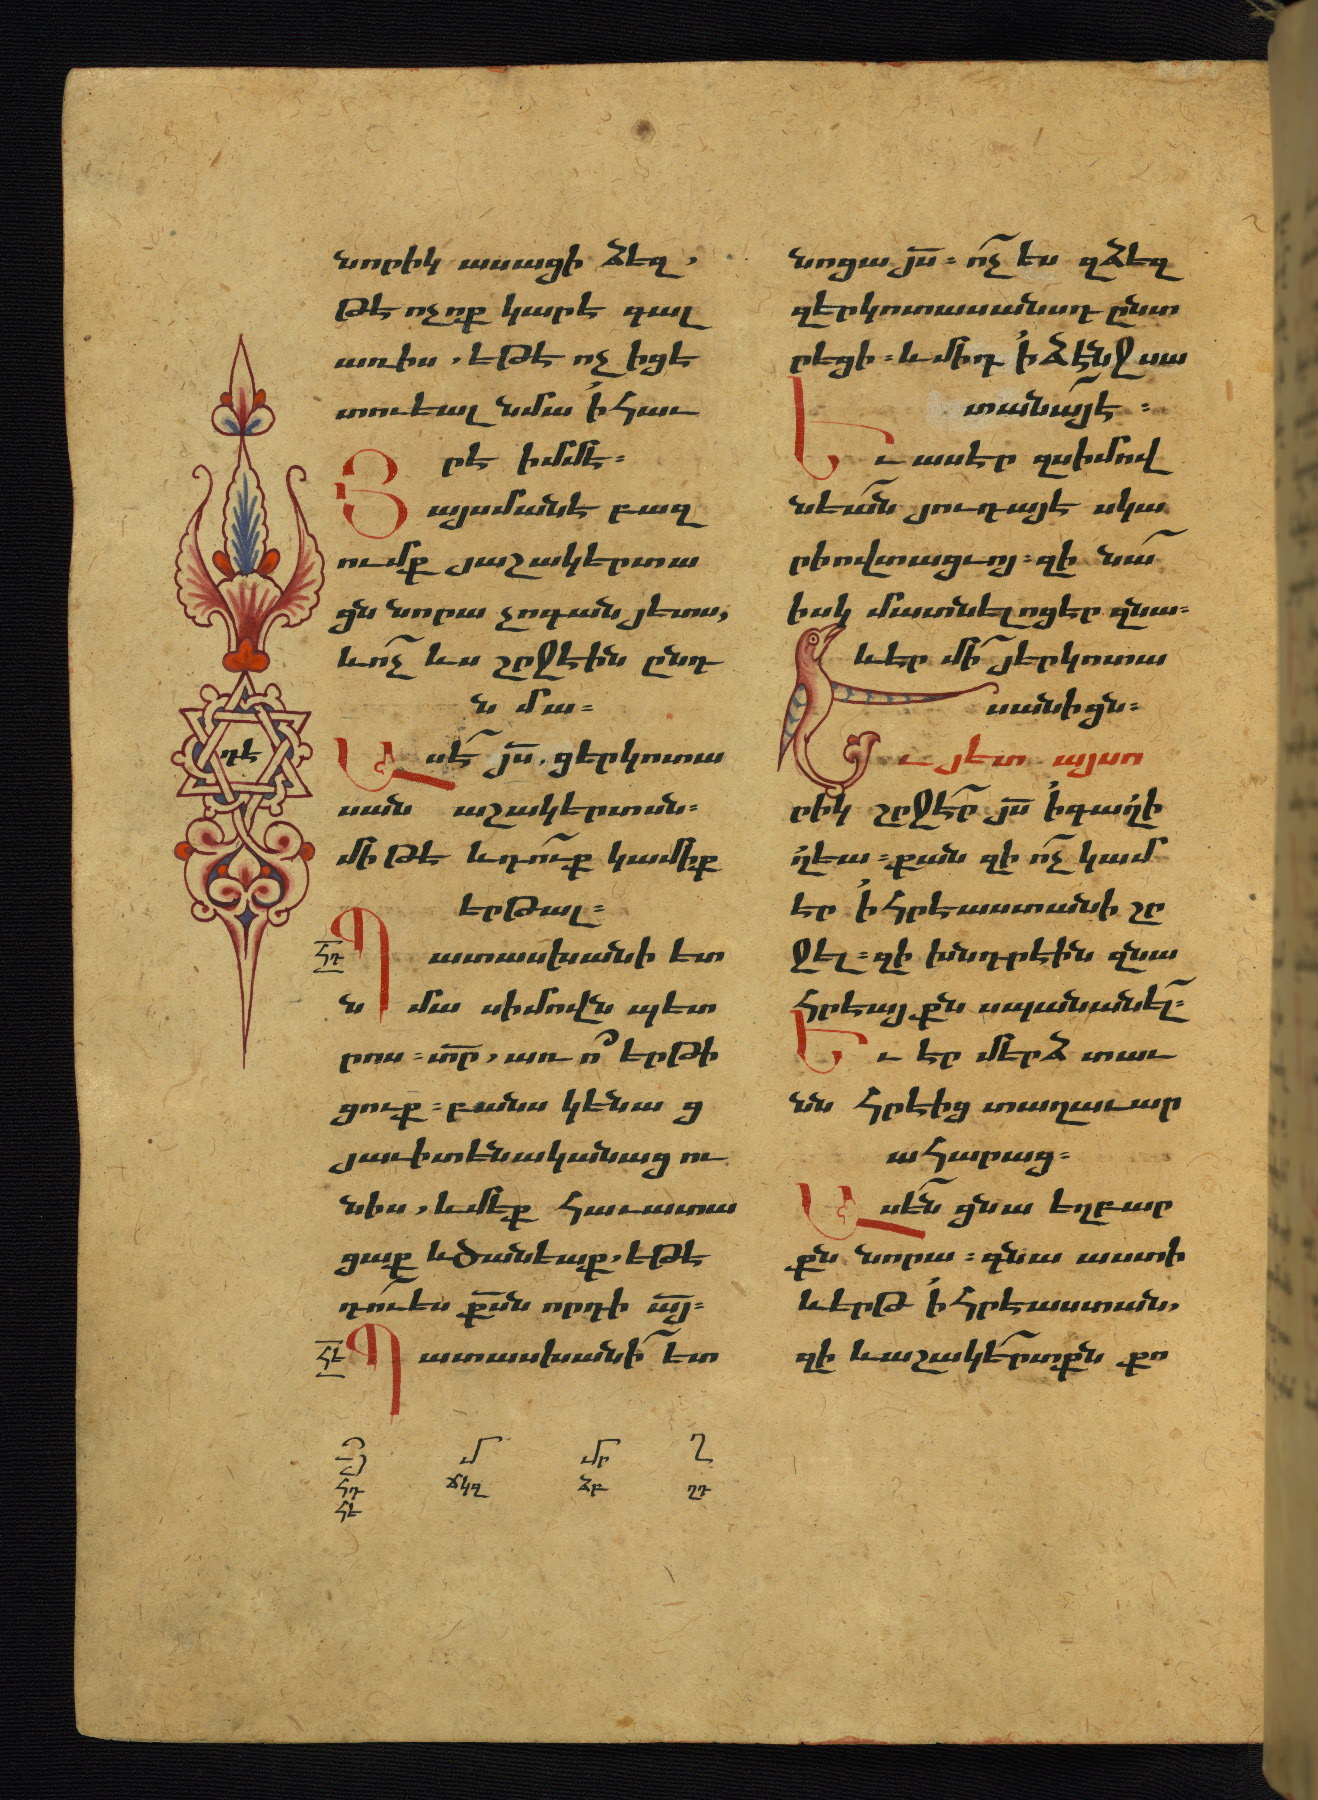 նորիկ ասացի ձեզ,
թէ ոչոք կարէ գալ
առիս, եթէ ոչ իցէ
տուեալ նմա ի հաւ
րէ իմմէ։
Յայսմանէ բազ
ումք յաշակերտա
ցն նորա չոգան յետս,
և ո՛չ ևս շրջէին ընդ
նմա։
Ասէ յս̅, ցերկոտա
սան աշակերտսն։
մի թէ և դուք կամիք
երթալ։
Պատասխանի ետ
նմա սիմովն պետ
րոս։ տր̅, առ ո՞ երթի
ցուք։ բանս կենաց
յաւիտենականաց ու
նիս, և մեք հաւատա
ցաք և ծանեաք, եթէ
դու ես քս̅ն որդի այ̅։
Պատասխանի ետ
նոցա յս̅։ ո՛չ ես զձեզ
զերկոտասանսդ ընտ
րեցի։ և մի դ ի ձէնջ սա
տանայէ։
Եւ ասէր զսիմով
նեան յուդայէ սկա
րիովտացւոյ։ զի նա
իսկ մատնելոցէր զնա։
և էր մի յերկոտա
սանիցն։
Եւ յետ այսո
րիկ շրջէր յս̅ ի գալի
լեա։ քան զի ո՛չ կամ
էր ի հրէաստանի շր
ջել։ զի խնդրէին զնա
հրեայքն սպանանել։
Եւ էր մերձ տաւ
նն հրէից տաղաւար
ահարաց։
Ասեն ցնա եղբար
քն նորա։ գնա աստի
և երթ ի հրէաստան,
զի և աշակերտքն քո
դէ
հդ
հե
Յ Մ Մր Ղ
հդ ճկզ ձբ ղդ
հե